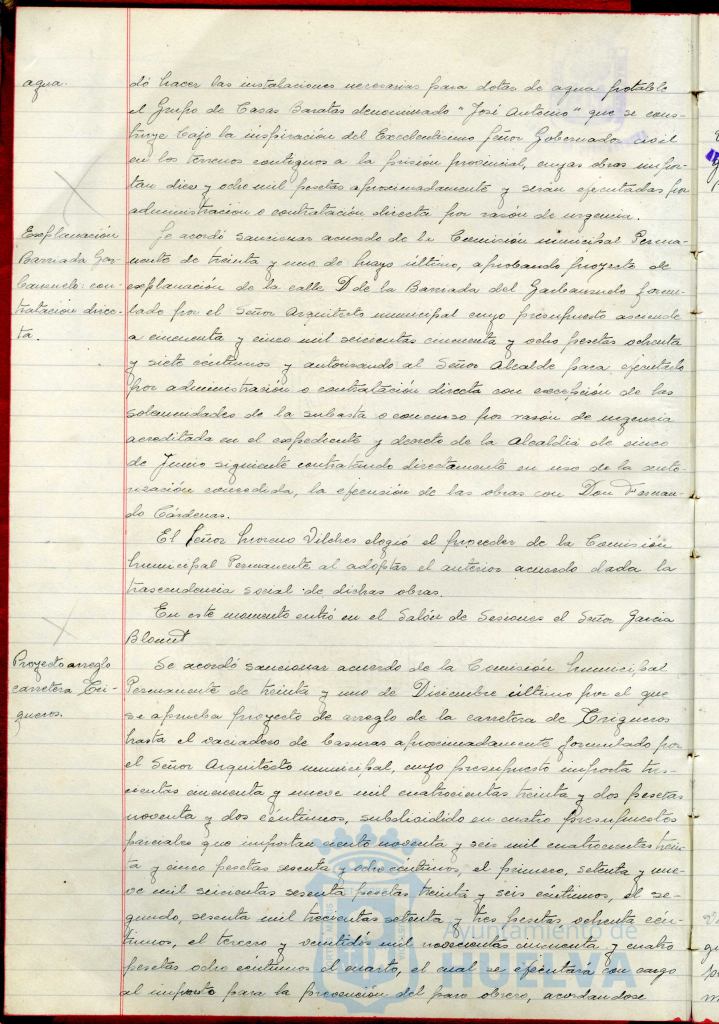 agua.
dó hacer las instalaciones necesarias para dotar de agua potable
el Grupo de Casas Baratas denominado "José Antonio" que se cons-
truye bajo la inspiración del Excelentísimo Señor Gobernador civil
en los terrenos contiguos a la prisión provincial, cuyas obras impor-
tan diez y ocho mil pesetas aproximadamente y serán ejecutadas por
administración o contratación directa por razón de urgencia.
Explanación
Barriada Gar-
banzuelo: con-
tratación direc-
ta.
Se acordó sancionar acuerdo de la Comisión municipal Perma-
nente de treinta y uno de Mayo último, aprobando proyecto de
explanación de la calle D de la Barriada del Garbanzuelo formu-
lado por el Señor Arquitecto municipal cuyo presupuesto asciende
a cincuenta y cinco mil seicientas cincuenta y ocho pesetas ochenta
y siete céntimos y autorizando al Señor Alcalde para ejecutarlo
por administración o contratación directa con excepción de las
solemnidades de la subasta o concurso por razón de urgencia
acreditada en el expediente y decreto de la Alcaldía de cinco
de Junio siguiente contratando directamente en uso de la auto-
rización concedida, la ejecusión de las obras con Don Fernan-
do Cárdenas.
El Señor Moreno Vilches elogió el proceder de la Comisión
Municipal Permanente al adoptar el anterior acuerdo dada la
trascendencia social de dichas obras.
En este momento entró en el Salón de Sesiones el Señor Garcia
Blomt
Proyecto arreglo
carretera Tri-
gueros.
Se acordó sancionar acuerdo de la Comisión Municipal
Permanente de treinta y uno de Diciembre último por el que
se aprueba proyecto de arreglo de la carretera de Trigueros
hasta el vaciadero de basuras aproximadamente formulado por
el Señor Arquitecto municipal, cuyo presupuesto importa tres-
cientas cincuenta y nueve mil cuatrocientas treinta y dos pesetas
noventa y dos céntimos, subdividido en cuatro presupuestos
parciales que importan ciento noventa y seis mil cuatrocientas trein-
ta y cinco pesetas sesenta y ocho céntimos, el primero, setenta y nue-
ve mil seicientas sesenta pesetas treinta y seis céntimos, el se-
gundo, sesenta mil trecientas setenta y tres pesetas ochenta cén-
timos, el tercero y veintidós mil novecientas cincuenta y cuatro
pesetas ocho céntimos el cuarto, el cual se ejecutará con cargo
al impuesto para la prevención del paro obrero, acordandose
Ayuntamiento de
HUELVA